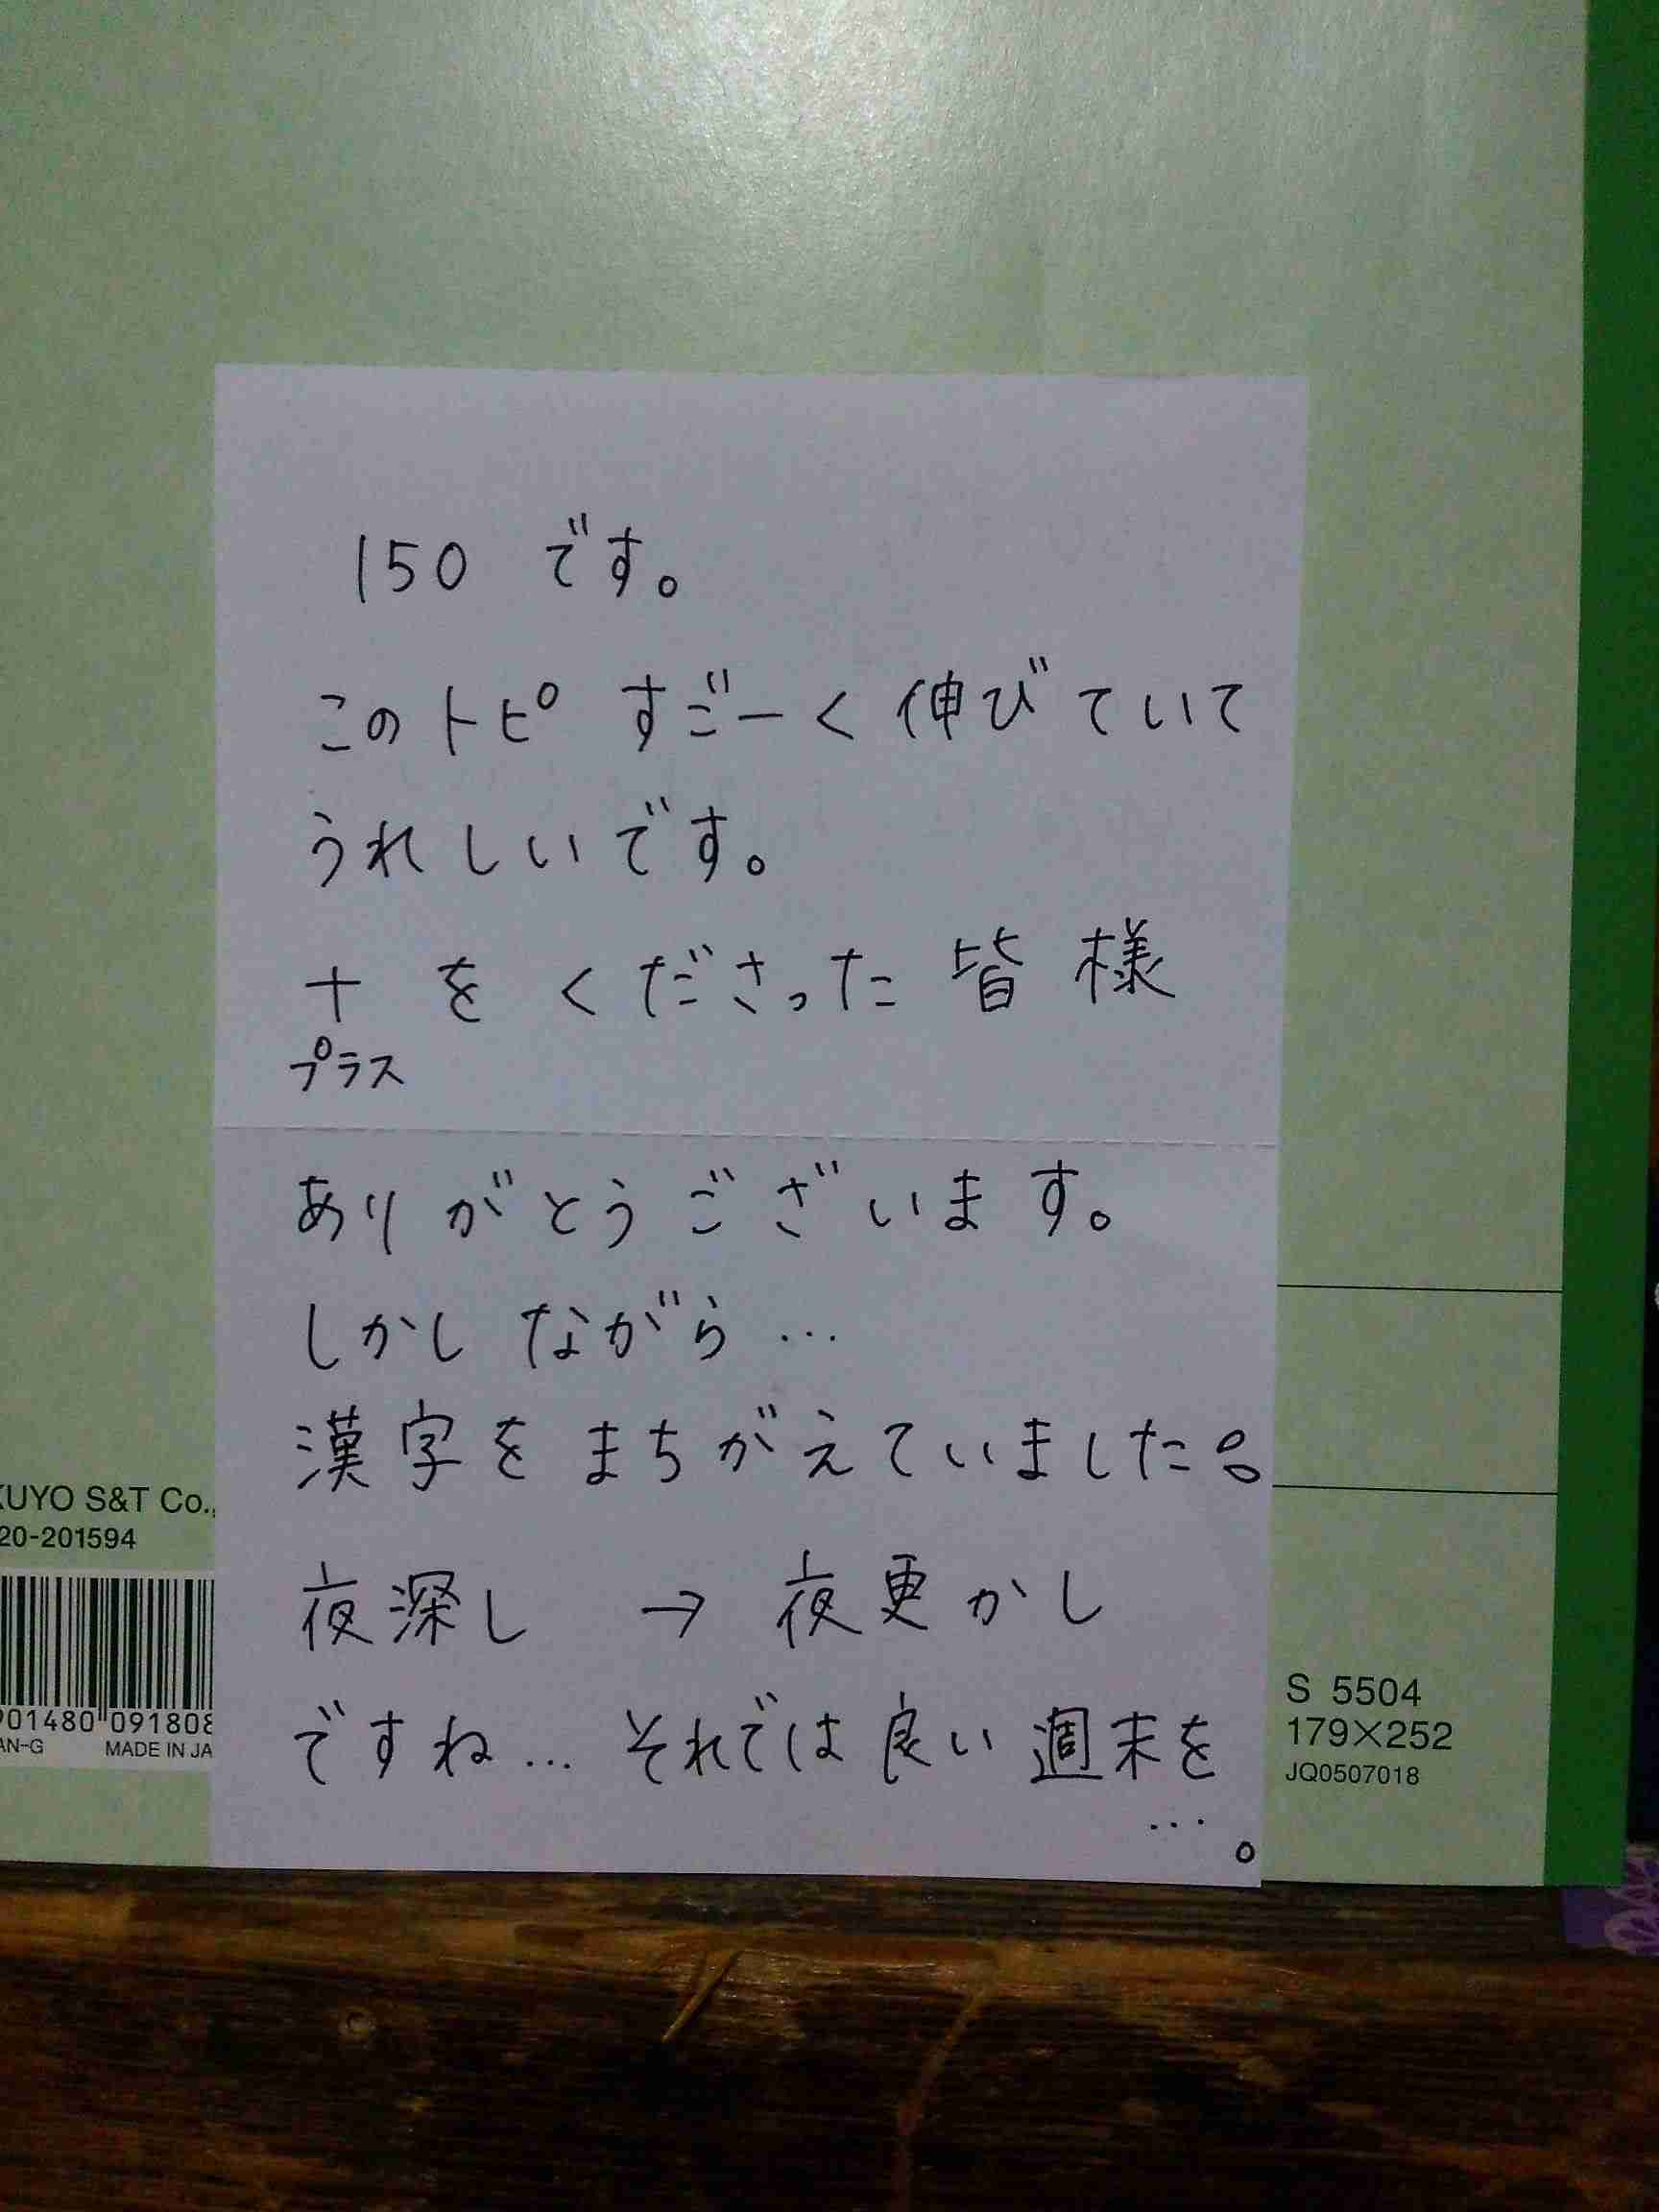 150 です。
このトピ すごーく伸びていて
うれしいです。
+ を くださった 皆様
プラス
ありがとうございます。
しかしながら…
漢字を まちがえていました。
夜深し → 夜更かし
ですね… それでは良い週末を
…。
KUYO S&T Co.,
20-201594
901480 091808
AN-G MADE IN JA
S 5504
179×252
JQ0507018